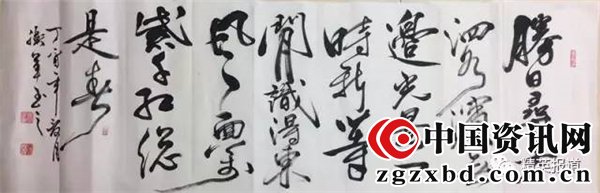 勝日尋
泗水濱無
邊光景一
時新等
閒識得東
風面萬
紫千紅總
是春
丁酉年
中国资讯网
zgzxbd.com.cn
精英报道